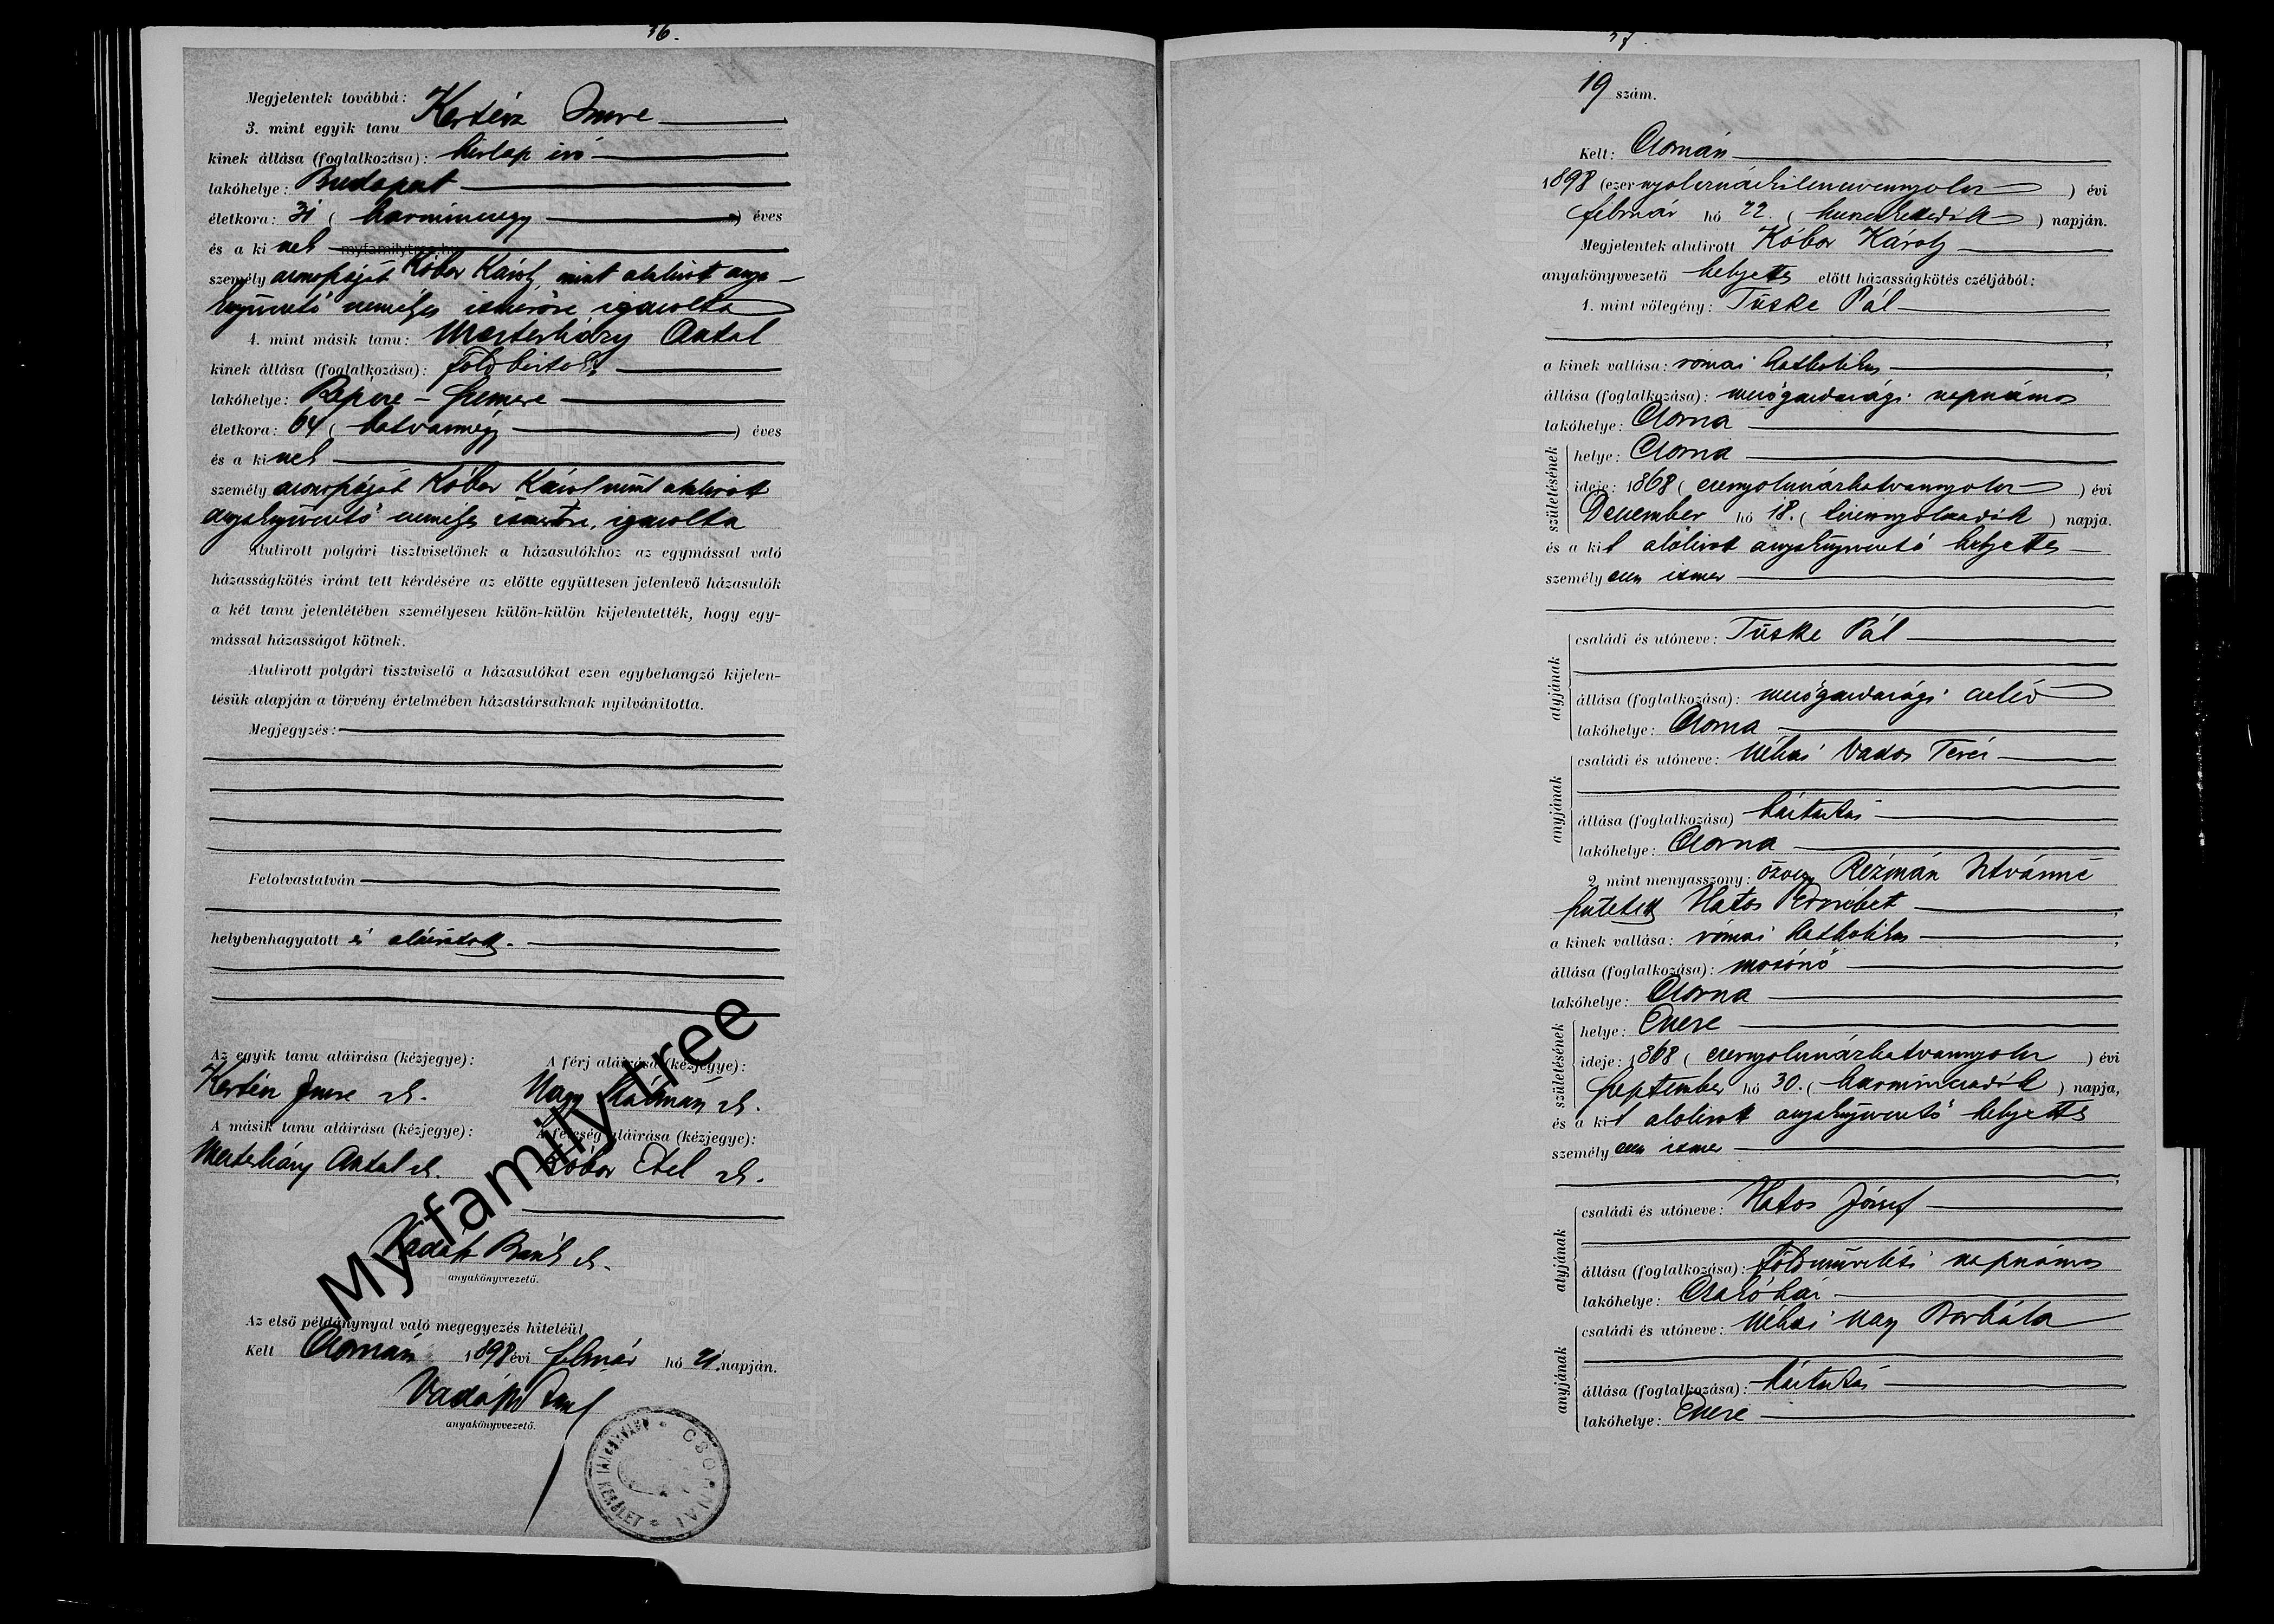 36.
Megjelentek továbbá:
3. mint egyik tanu Kertész Imre
kinek állása (foglalkozása): hirlap iró
lakóhelye: Budapest
életkora: 31 ( harminczegy ) éves
és a ki nek myfamilytree.hu
személy azonosságát Kóbor Károly, mint alulirott anya-
könyvvezető személyes ismerőse igazolta
4. mint másik tanu: Mesterházy Antal
kinek állása (foglalkozása): földbirtokos
lakóhelye: Rápcze - Szemere
életkora: 64 ( hatvannégy ) éves
és a ki nek
személy azonosságát Kóbor Károly mint alulirott
anyakönyvvezető személyes ismerőse, igazolta
Alulirott polgári tisztviselőnek a házasulókhoz az egymással való
házasságkötés iránt tett kérdésére az előtte együttesen jelenlevő házasulók
a két tanu jelenlétében személyesen külön-külön kijelentették, hogy egy-
mással házasságot kötnek.
Alulirott polgári tisztviselő a házasulókat ezen egybehangzó kijelen-
tésük alapján a törvény értelmében házastársaknak nyilvánitotta.
Megjegyzés:
Felolvastatván
helybenhagyatott és aláiratott.
Az egyik tanu aláirása (kézjegye): A férj aláirása (kézjegye):
Kertész Imre sk. Nagy Kálmán sk.
A másik tanu aláirása (kézjegye): A feleség aláirása (kézjegye):
Mesterházy Antal sk. Kóbor Etel sk.
sk.
anyakönyvvezető.
Az első példánynyal való megegyezés hiteléül
Kelt Csornán 1898 évi február hó 21. napján.
anyakönyvvezető.
CSORNAI ANYAKÖNYVI KERÜLET
My family tree
37.
19 szám.
Kelt: Csornán
1898 (ezernyolczszázkilenczvennyolcz ) évi
február hó 22. ( huszonkettedik ) napján.
Megjelentek alulirott Kóbor Károly
anyakönyvvezető helyettes előtt házasságkötés czéljából:
1. mint vőlegény: Tüske Pál
a kinek vallása: római katholikus
állása (foglalkozása): mezőgazdasági napszámos
lakóhelye: Csorna
születésének
helye: Csorna
ideje: 1868 ( ezernyolczszázhatvannyolcz ) évi
December hó 18. ( tizennyolczadik ) napja.
és a kit alólirott anyakönyvvezető helyettes
személyesen ismer
atyjának
családi és utóneve: Tüske Pál
állása (foglalkozása): mezőgazdasági cseléd
lakóhelye: Csorna
anyjának
családi és utóneve: Néhai Vados Teréz
állása (foglalkozása) háztartás
lakóhelye: Csorna
2. mint menyasszony: özvegy Rézmán Istvánné
született Hatos Erzsébet
a kinek vallása: római katholikus
állása (foglalkozása): mosónő
lakóhelye: Csorna
születésének
helye: Enese
ideje: 1868 ( ezernyolczszázhatvannyolcz ) évi
Szeptember hó 30. ( harminczadik ) napja,
és a kit alólirott anyakönyvvezető helyettes
személyesen ismer
atyjának
családi és utóneve: Hatos József
állása (foglalkozása): földmüvelési napszámos
lakóhelye:
anyjának
családi és utóneve: Néhai Nagy Borbála
állása (foglalkozása): háztartás
lakóhelye: Enese